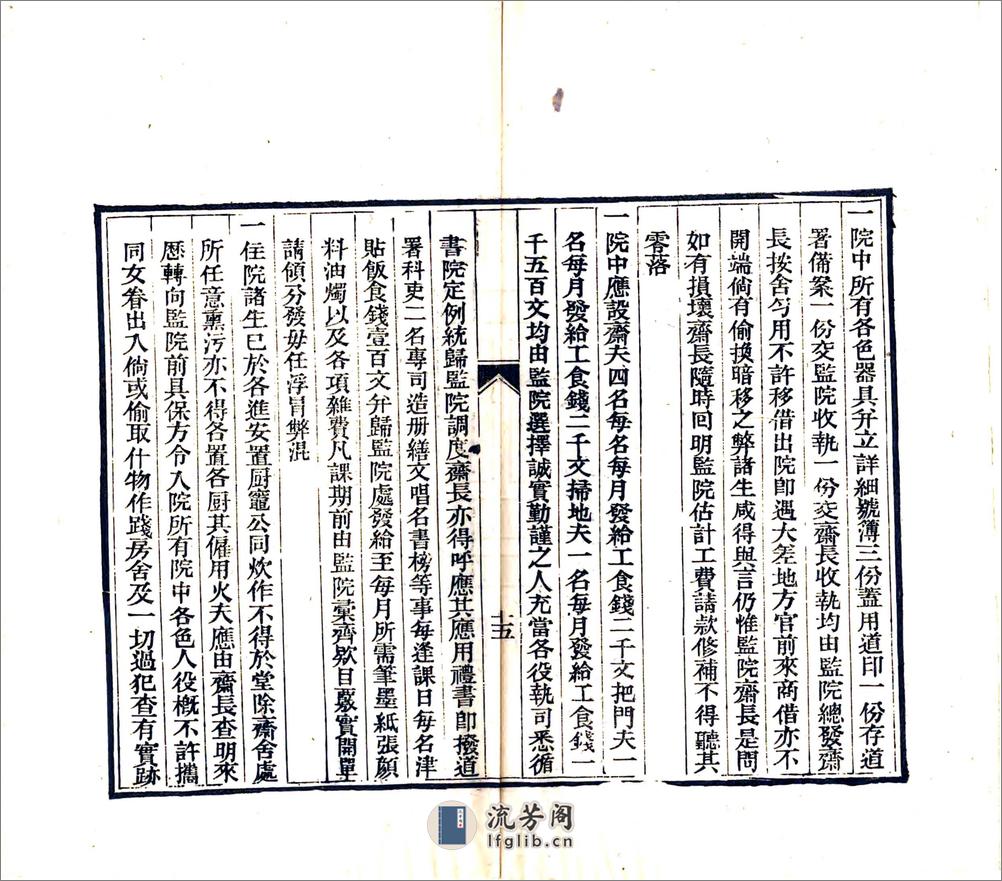 一院中所有各色器具并立詳細號簿三份蓋用道印一份存道
署備案一份交監院收執一份交齋長收執均由監院總發齋
長按舍勻用不許移借出院卽遇大差地方官前來商借亦不
開端倘有偷換暗移之弊諸生咸得與言仍惟監院齋長是問
如有損壞齋長隨時回明監院估計工費請款修補不得聽其
零落
一院中應設齋夫四名每名每月發給工食錢二千文把門夫一
名每月發給工食錢二千文掃地夫一名每月發給工食錢一
千五百文均由監院選擇誠實勤謹之人充當各役執司悉循
十五
書院定例統歸監院調度齋長亦得呼應其應用禮書卽撥道
署科吏二名專司造册繕文唱名書榜等事每逢課日每名津
貼飯食錢壹百文弁歸監院處發給至每月所需筆墨紙張顏
料油燭以及各項雜費凡課期前由監院彙齊欵目覈實開單
請領分發毋任浮冒弊混
一住院諸生已於各進安置厨竈公同炊作不得於堂除齋舍處
所任意熏污亦不得各置各厨其僱用火夫應由齋長查明來
歷轉向監院前具保方令入院所有院中各色人役槪不許攜
同女眷出入倘或偷取什物作踐房舍及一切過犯查有實跡
流芳阁
lfglib.cn